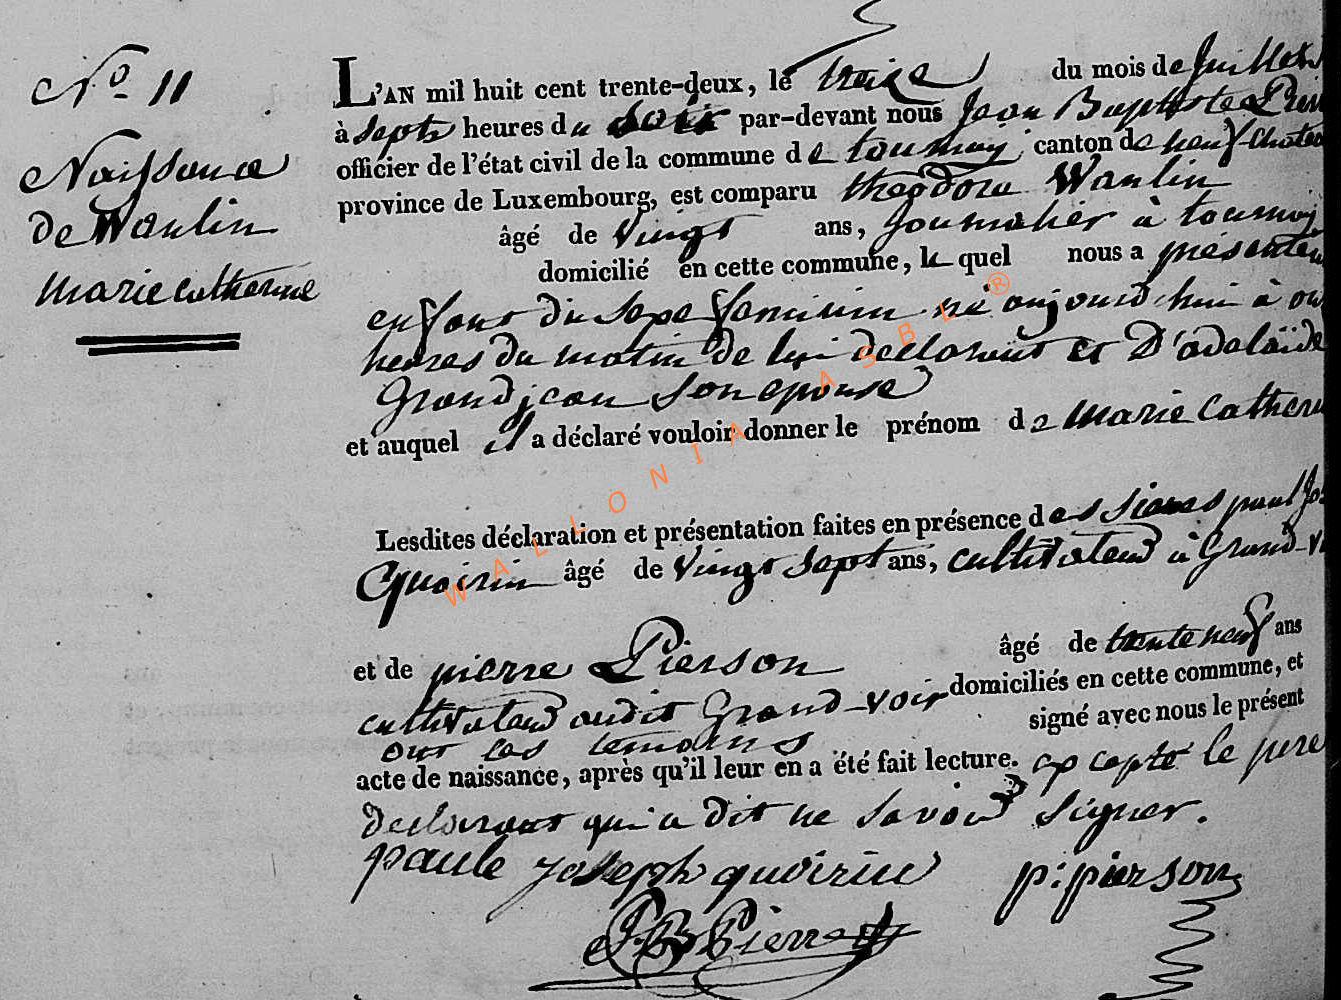 N.o 11
Naissance
de Wanlin
marie catherine
L'AN mil huit cent trente-deux, le treize du mois de Juillet
à sept heures du soir par-devant nous Jean Baptiste
officier de l'état civil de la commune de tournay canton de neuf-chatea
province de Luxembourg, est comparu théodore Wanlin
âgé de Vingt ans, journalier à tournay
domicilié en cette commune, lequel nous a présenté un
enfant du sexe féminin né aujourd'hui à
heures du matin de lui declarant et D'adelaïde
Grandjean son epouse
et auquel il a déclaré vouloir donner le prénom de marie Catheri
Lesdites déclaration et présentation faites en présence des sieurs paul Jos
Quoirin âgé de Vingt sept ans, cultivateur à Grand-v
et de pierre Pierson âgé de trente neuf ans
cultivateur audit Grand-voir domiciliés en cette commune, et
ont les temoins signé avec nous le présent
acte de naissance, après qu'il leur en a été fait lecture. excepté le pere
declarant qui a dit ne savoir signer.
paule joseph quoirin p: pierson
J.B Pierret
WALLONIA ASBL ®